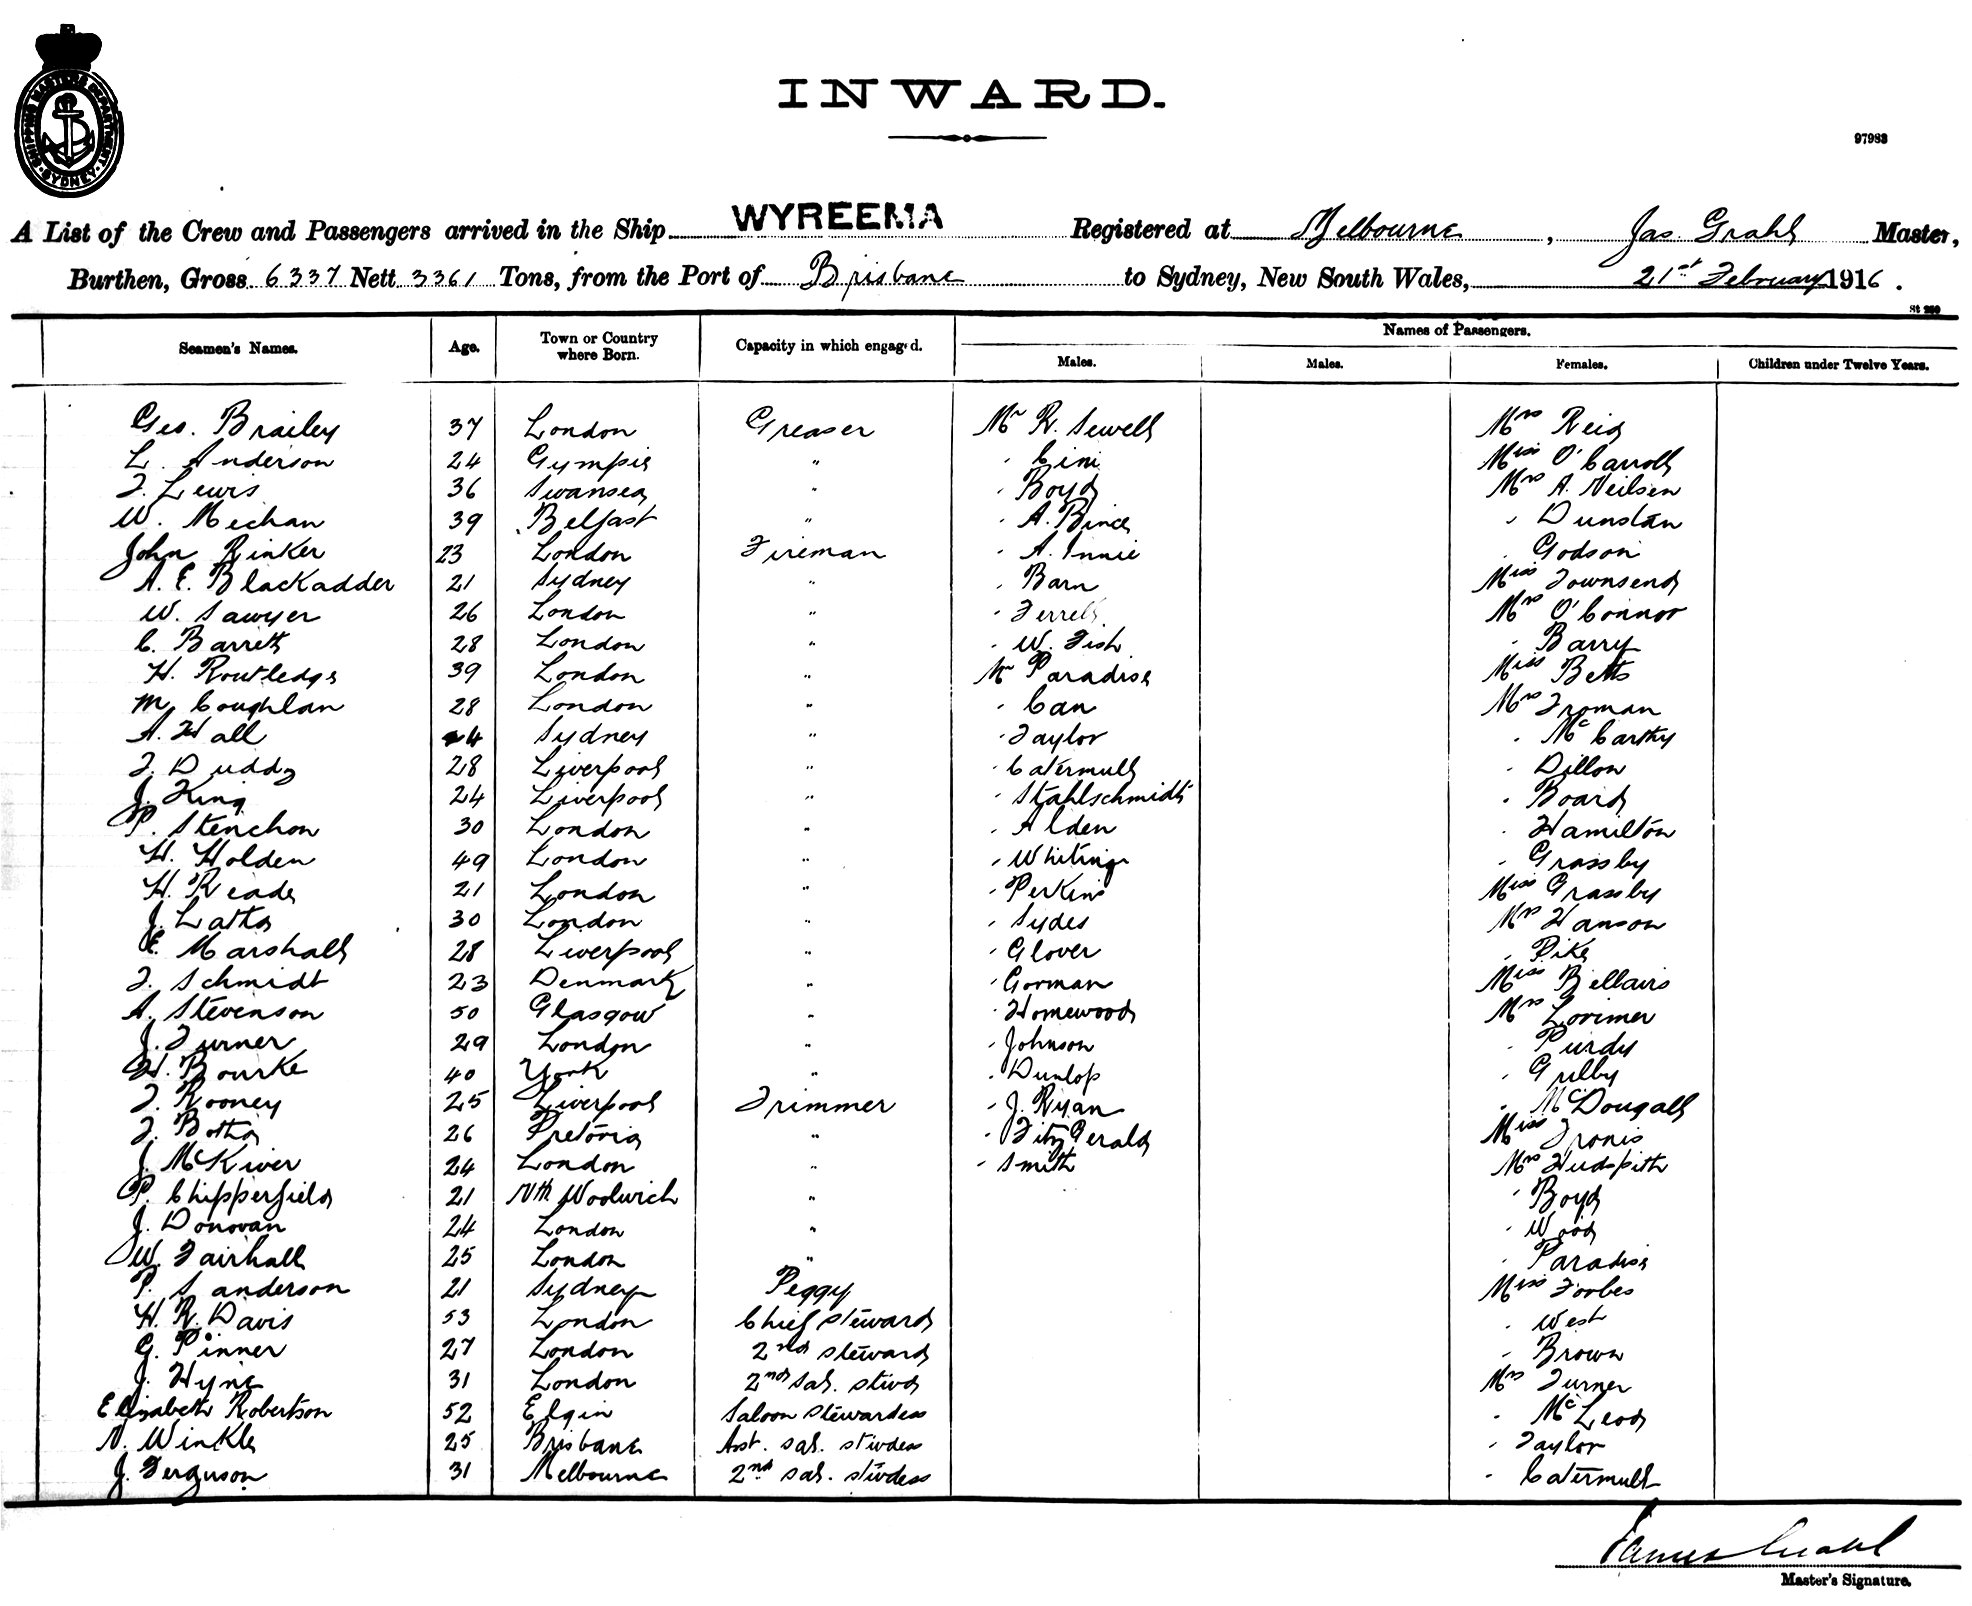 SHIPPING MASTERS DEPARTMENT
SYDNEY
INWARD.
97983
A List of the Crew and Passengers arrived in the Ship WYREEMA Registered at Melbourne, Jas. Grahl Master,
Burthen, Gross 6337 Nett 3361 Tons, from the Port of Brisbane to Sydney, New South Wales, 21st February 1916.
Seamen's Names. Age. Town or Country where Born. Capacity in which engaged. Names of Passengers.
Males. Males. Females. Children under Twelve Years.
Geo. Brailey 37 London Greaser Mr R. Sewell Mrs Reid
L. Anderson 24 Gympie " " Cini Miss O'Carroll
J. Lewis 36 Swansea " " Boyd Mrs A. Neilsen
W. Mechan 39 Belfast " " A. Bince " Dunstan
John Rinker 23 London Fireman " A. Innie " Godson
A. E. Blackadder 21 Sydney " " Barn Miss Townsend
W. Sawyer 26 London " " Ferrell Mrs O'Connor
C. Barrett 28 London " " W. Fish " Barry
H. Routledge 39 London " Mr Paradise Miss Betts
M. Coughlan 28 London " " Can Mrs Froman
A. Hall Sydney " " Taylor " McCarthy
J. Duddy 28 Liverpool " " Catermull " Dillon
J. King 24 Liverpool " " Stahlschmidt " Board
P. Stenchon 30 London " " Alden " Hamilton
H. Holden 49 London " " Whiting " Grassby
H. Reade 21 London " " Perkins Miss Grassby
J. Latta 30 London " " Sydes Mrs Hanson
E. Marshall 28 Liverpool " " Glover " Pike
J. Schmidt 23 Denmark " " Gorman Miss Bellairs
A. Stevenson 50 Glasgow " " Homewood Mrs Lorimer
J. Turner 29 London " " Johnson " Purdy
H. Bourke 40 York " " Dunlop " Gulby
J. Rooney 25 Liverpool Trimmer " J. Ryan " McDougall
J. Botha 26 Pretoria " " FitzGerald Miss Ironis
J. McKiver 24 London " " Smith Mrs Hudspith
P. Chipperfield 21 Nth Woolwich " " Boyd
J. Donovan 24 London " " Wood
W. Fairhall 25 London " " Paradise
P. Sanderson 21 Sydney Peggy Miss Forbes
H. R. Davis 53 London Chief Steward " West
G. Pinner 27 London 2nd Steward " Brown
J. Hyne 31 London 2nd Sal. Stwd Mrs Turner
Elizabeth Robertson 52 Elgin Saloon Stewardess " McLeod
N. Winkle 25 Brisbane Asst. Sal. Stwdess " Taylor
J. Ferguson 31 Melbourne 2nd Sal. Stwdess " Catermull
James Grahl
Master's Signature.